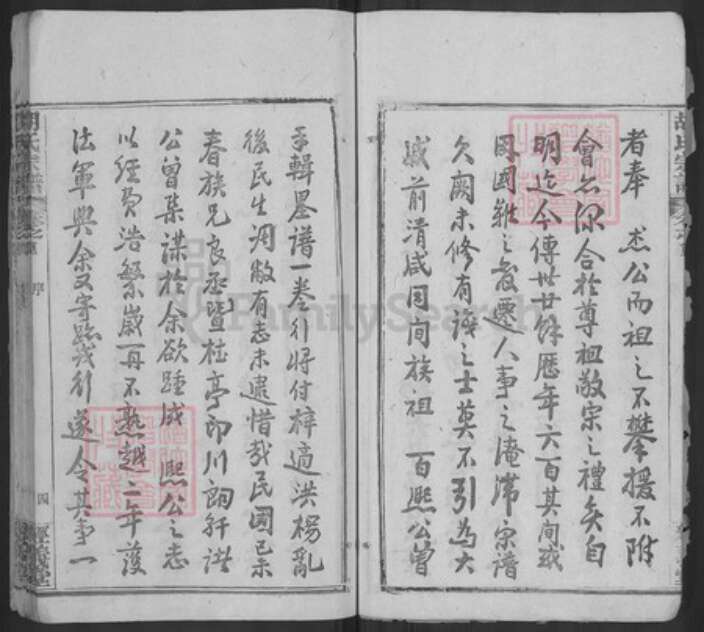 者奉 杰公而祖之不攀援不附
會亦深合於尊祖敬宗之禮矣自
明迄今傳世廿餘歷年六百其間或
因國難之播遷人事之淹滯宗譜
久闕未修有識之士莫不引為大
慼前清咸同間族祖 百熙公曾
手輯墨譜一卷行將付梓適洪楊亂
後民生凋敝有志未逮惜哉民國己未
春族兄良丞暨桂亭印川翩軒諸
公曾集謀於余欲踵成 熙公之志
以經費浩繁歲再不熟越二年護
法軍興余又寄跡戎行遂令其事一
胡氏宗譜
卷之
序
四
FamilySearch